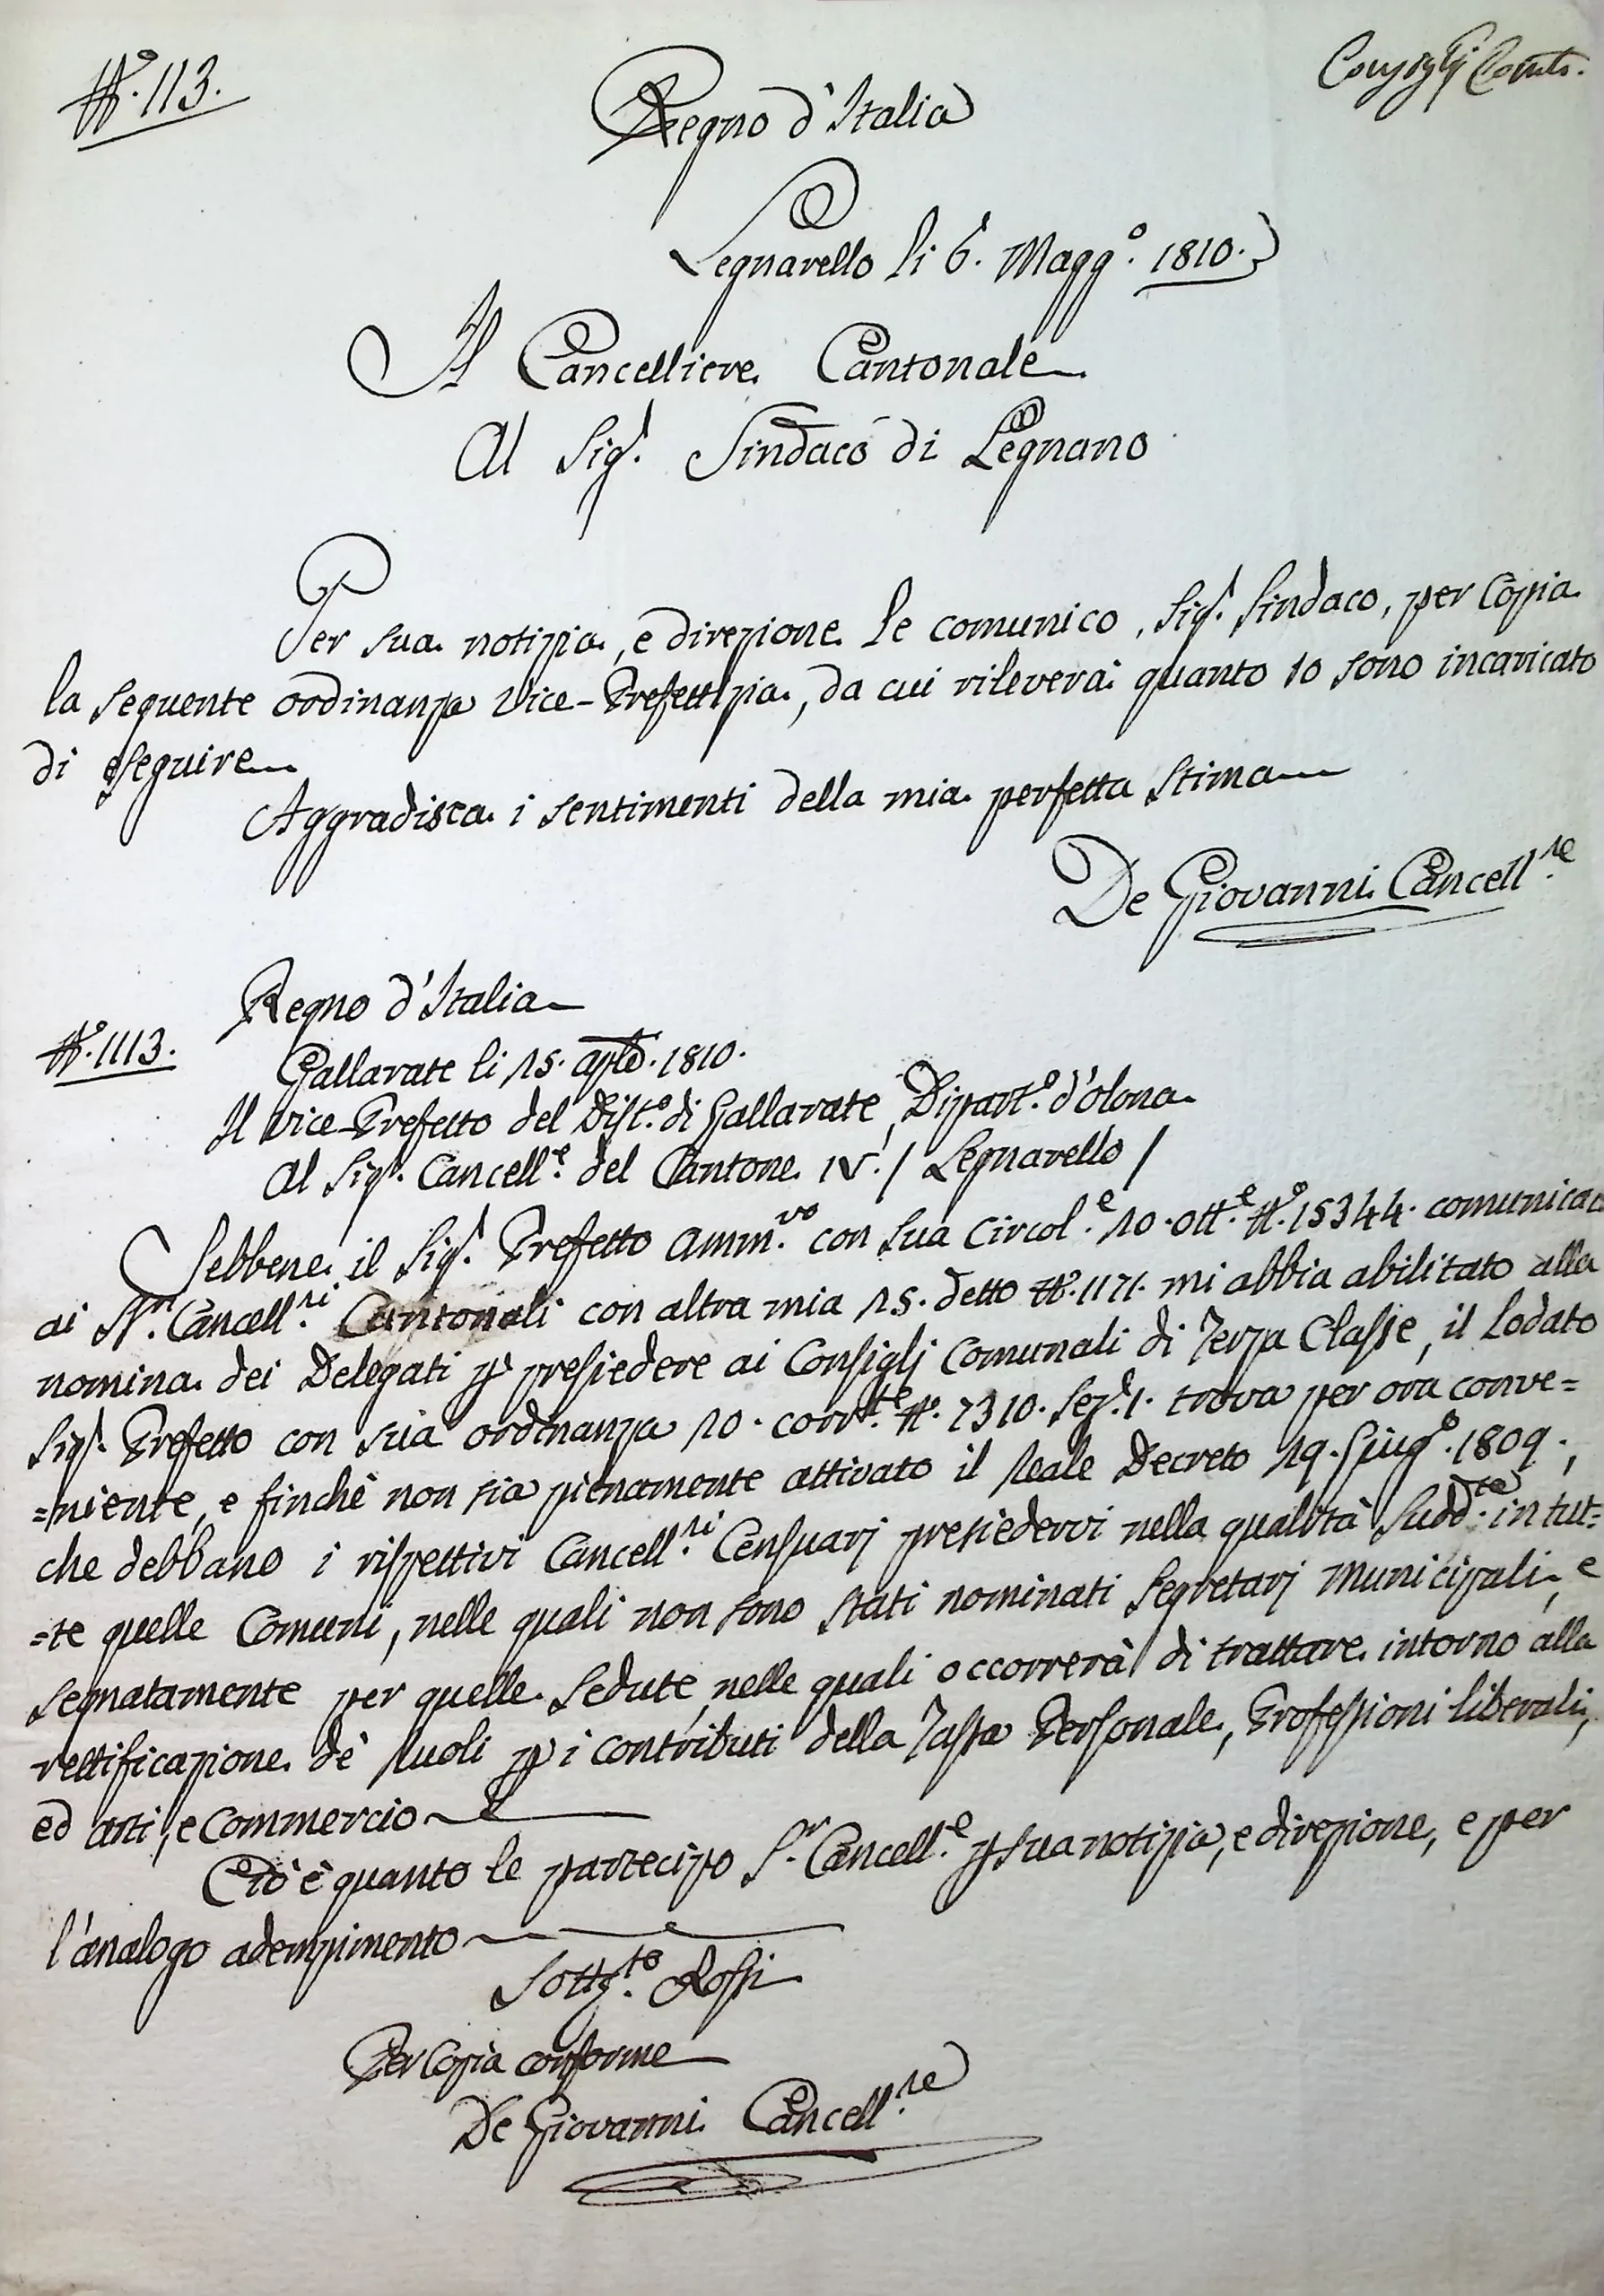 N.° 113.
Consigli Comli.
Regno d'Italia
Legnarello li 6. Magg.° 1810.
Il Cancelliere Cantonale
Al Sig.r Sindaco di Legnano
Per sua notizia, e direzione le comunico, Sig.r Sindaco, per Copia
la seguente ordinanza Vice-Prefettizia, da cui rileverà quanto io sono incaricato
di eseguire
Aggradisca i sentimenti della mia perfetta stima
De Giovanni Cancell.re
Regno d'Italia
N.° 1113.
Gallarate li 15. aple. 1810.
Il Vice-Prefetto del Dist.° di Gallarate, Dipart.° d'olona
Al Sig.r Cancell.e del Cantone IV. / Legnarello /
Sebbene il Sig.r Prefetto Amm.vo con sua Circol.e 10. ott.e N.° 15344. comunicata
ai Sr. Cancell.ri Cantonali con altra mia 15. detto N.° 1171. mi abbia abilitato alla
nomina dei Delegati p presiedere ai Consiglj Comunali di Terza Classe, il lodato
Sig.r Prefetto con sua ordinanza 10. corr.te N.° 7310. Sez.e 1. trova per ora conve=
=niente, e finchè non sia pienamente attivato il Reale Decreto 19. Giug.° 1809.,
che debbano i rispettivi Cancell.ri Censuarj presiedervi nella qualità sudd.ta in tut=
=te quelle Comuni, nelle quali non sono stati nominati Segretarj Municipali, e
segnatamente per quelle sedute, nelle quali occorrerà di trattare intorno alla
rettificazione de' Ruoli p i contributi della Tassa Personale, Professioni liberali,
ed arti, e Commercio
Ciò è quanto le partecipo Sr. Cancell.e p sua notizia, e direzione, e per
l'analogo adempimento
Sott.to Rossi
Per Copia conforme
De Giovanni Cancell.re